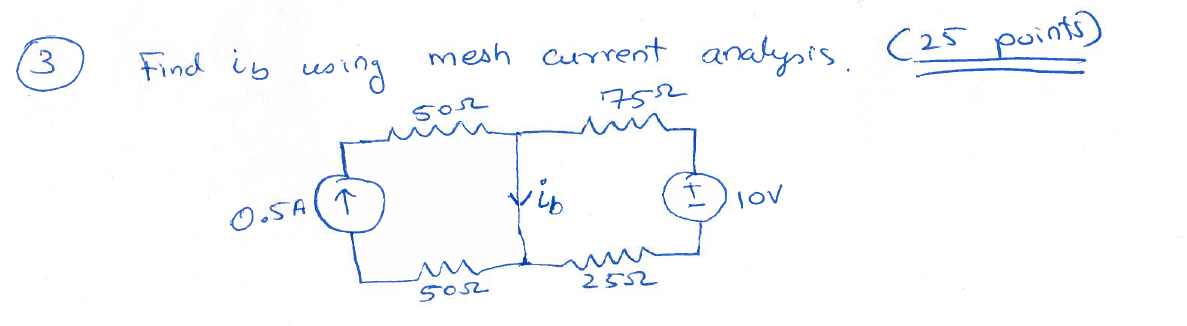 3 Find ib using mesh current analysis. (25 points)
50Ω 75Ω
0.5A ↑ ib + - 10V
50Ω 25Ω